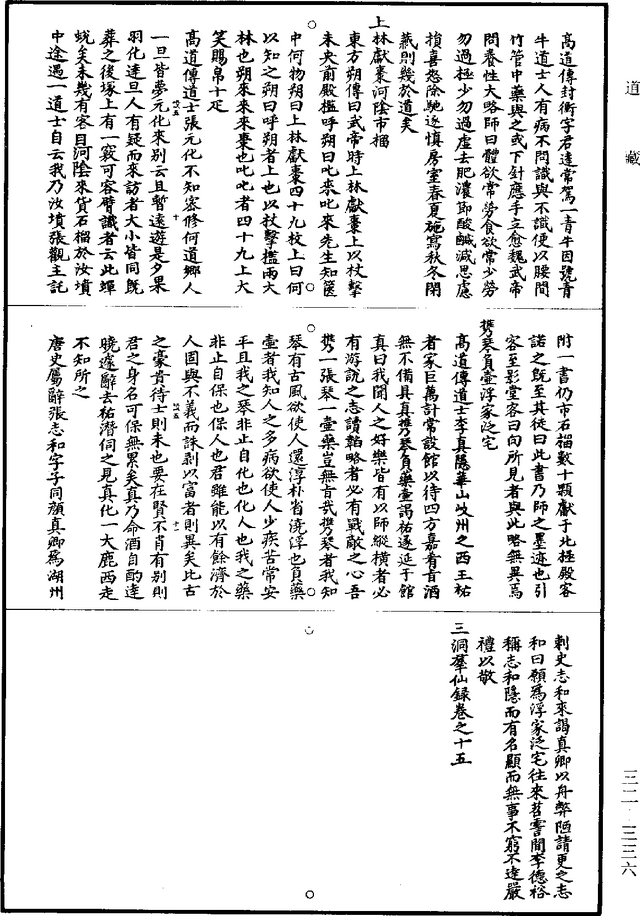 道藏
高道傳封衡字君達常駕一青牛因號青
牛道士人有病不問識與不識便以腰間
竹管中藥與之或下針應手立愈魏武帝
問養性大略師曰體欲常勞食欲常少勞
勿過極少勿過虛去肥濃節酸鹹減思慮
損喜怒除馳逐慎房室春夏施寫秋冬閉
藏則幾於道矣
上林獻棗河陰市榴
東方朔傳曰武帝時上林獻棗上以杖擊
未央前殿檻呼朔曰叱來叱來先生知篋
中何物朔曰上林獻棗四十九枚上曰何
以知之朔曰呼朔者上也以杖擊檻兩木
林也朔來來來棗也叱叱者四十九上大
笑賜帛十疋
高道傳道士張元化不知密修何道鄉人
一旦皆夢元化來別云且暫遠遊是夕果
羽化達旦人有疑而來訪者大小皆同既
葬之後塚上有一竅可容臂識者云此蟬
蛻矣未幾有客自河陰來貨石榴於汝墳
中途遇一道士自云我乃汝墳張觀主託
附一書仍市石榴數十顆獻于北極殿客
諾之既至其徒曰此書乃師之墨迹也引
客至影堂客曰向所見者與此略無異焉
攜琴負壺浮家泛宅
高道傳道士李真隱華山岐州之西王祐
者家巨萬計常設館以待四方嘉肴旨酒
無不備具真攜琴負藥壺謁祐遂延于館
真曰我聞人之好樂皆有以師縱橫者必
有游說之志讀韜略者必有戰敵之心吾
攜一張琴一壺藥豈無旨哉攜琴者我知
琴有古風欲使人還淳朴省澆浮也負藥
壺者我知人之多病欲使人少疾苦常安
平且我之琴非止自化也化人也我之藥
非止自保也保人也君雖能以有餘濟於
人固與不義而誅剥以富者則異矣比古
之豪肯待士則未也要在賢不肖有別則
君之身名可保無累矣真乃命酒自酌達
曉遽辭去祐潛伺之見真化一大鹿西走
不知所之
唐史屬辭張志和字子同顏真卿為湖州
刺史志和來謁真卿以舟弊陋請更之志
和曰願為浮家泛宅往來苕霅間李德裕
稱志和隱而有名顯而無事不窮不達嚴
禮以敬
三洞羣仙録卷之十五
三二－三三六